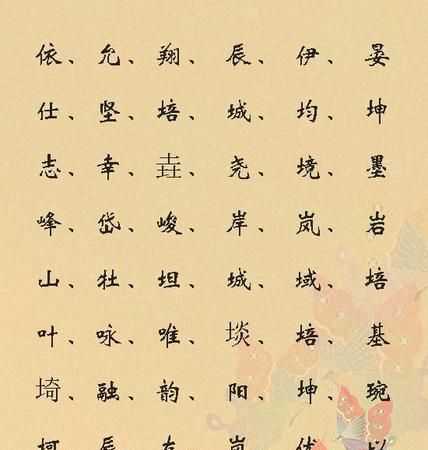 依、允、翔、辰、伊、晏
仕、坚、培、城、均、坤
志、幸、壵、尧、境、墨
峰、岱、峻、岸、岚、岩
山、牡、坦、城、域、培
叶、咏、唯、埮、培、基
埼、融、韵、阳、坤、琬